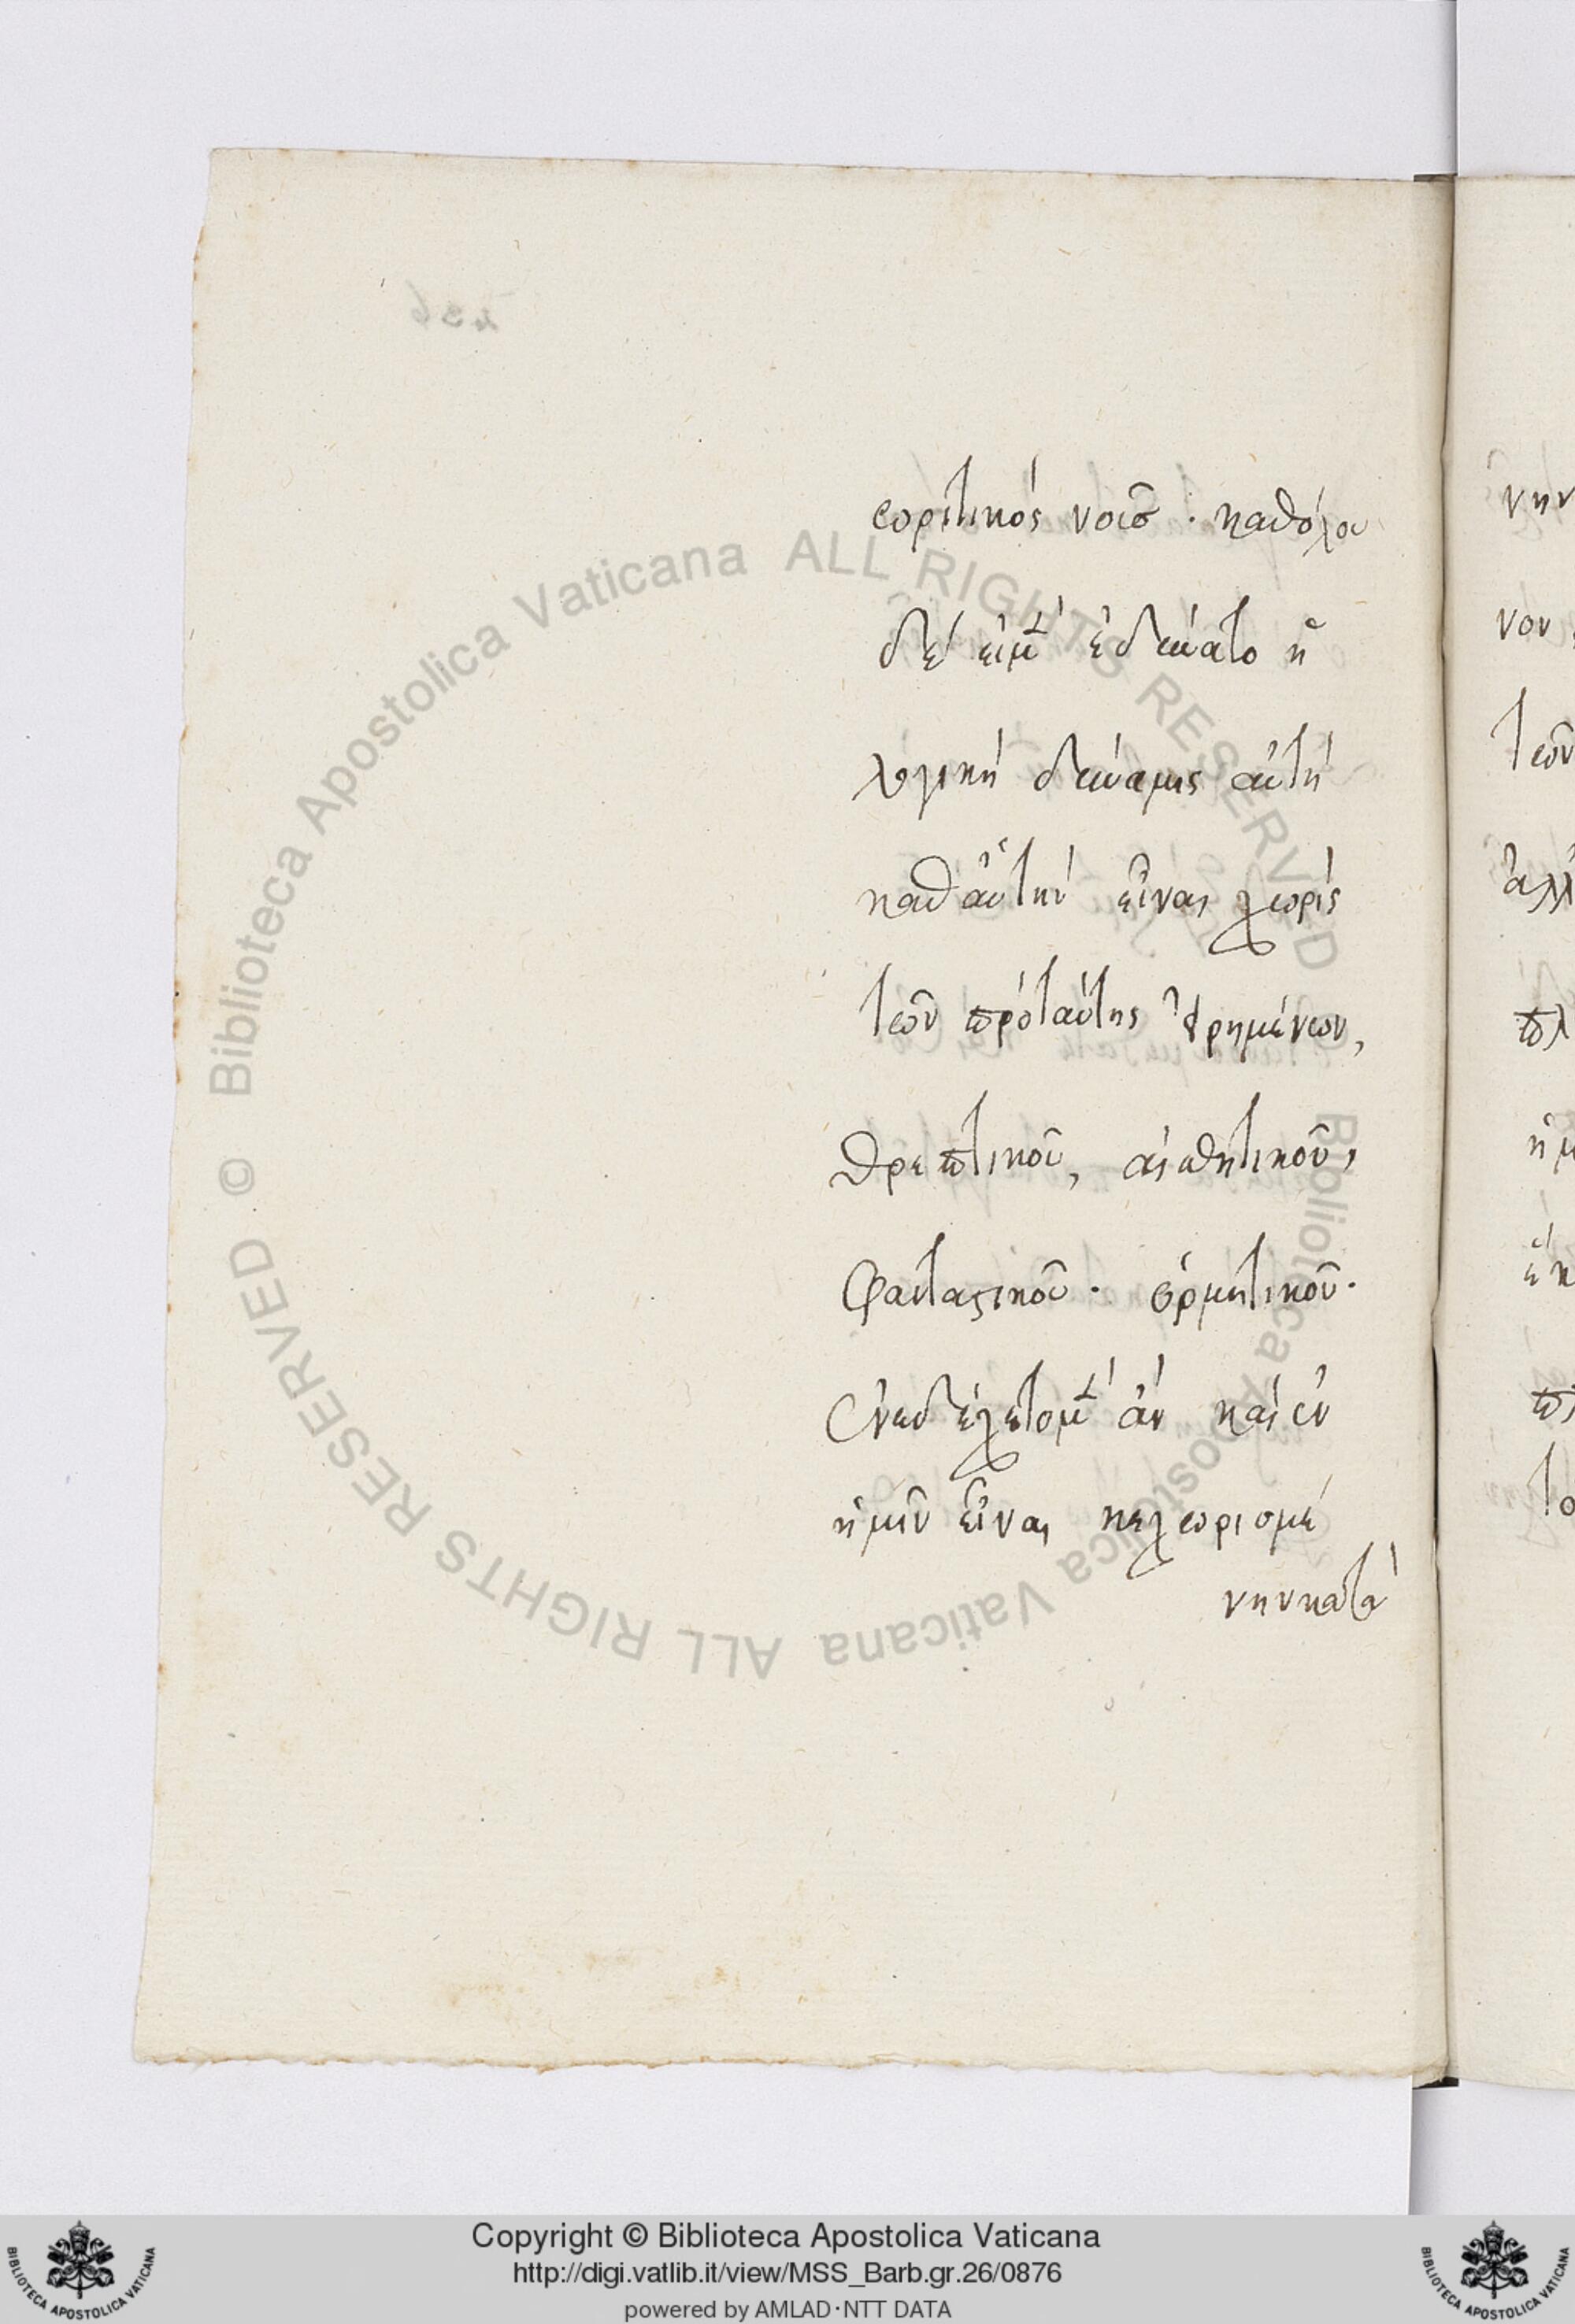 ωρητικὸς νοῦσ. καθόλου
δὲ εἰ μὲν ἐδύνατο ἡ
λογικὴ δύναμις αὐτὴ
καθ' αὑτὴν εἶναι χωρὶς
τῶν πρὸ ταύτης εἰρημένων,
θρεπτικοῦ, αἰσθητικοῦ,
φανταστικοῦ. ὁρμητικοῦ.
ἐνεδέχετο μὲν ἂν καὶ ἐν
ἡμῖν εἶναι κεχωρισμέ
νην κατὰ
νην
νον
τῶν
ἀλλ
πλ
ἡμ
το
Copyright © Biblioteca Apostolica Vaticana
http://digi.vatlib.it/view/MSS_Barb.gr.26/0876
powered by AMLAD·NTT DATA
© Biblioteca Apostolica Vaticana ALL RIGHTS RESERVED
Biblioteca Apostolica Vaticana ALL RIGHTS RESERVED
BIBLIOTECA APOSTOLICA VATICANA
BIBLIOTECA APOSTOLICA VATICANA